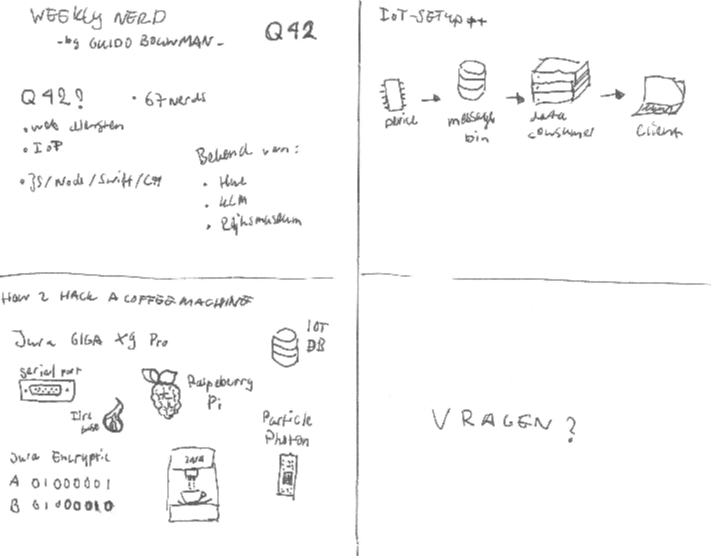 WEEKLY NERD
-by GUIDO BOUWMAN-
Q42
Q42?
• 67 nerds
• web diensten
• IoT
• JS/Node/Swift/C#
Bekend van:
• Hue
• KLM
• Rijksmuseum
IoT-SETup
device
message
bin
data
consumer
Client
HOW 2 HACK A COFFEE MACHINE
Jura GIGA X9 Pro
IOT
DB
serial port
Raspeburry
Pi
Fire
base
Particle
Photon
Jura Encryptic
JURA
A 01000001
B 01000010
VRAGEN?